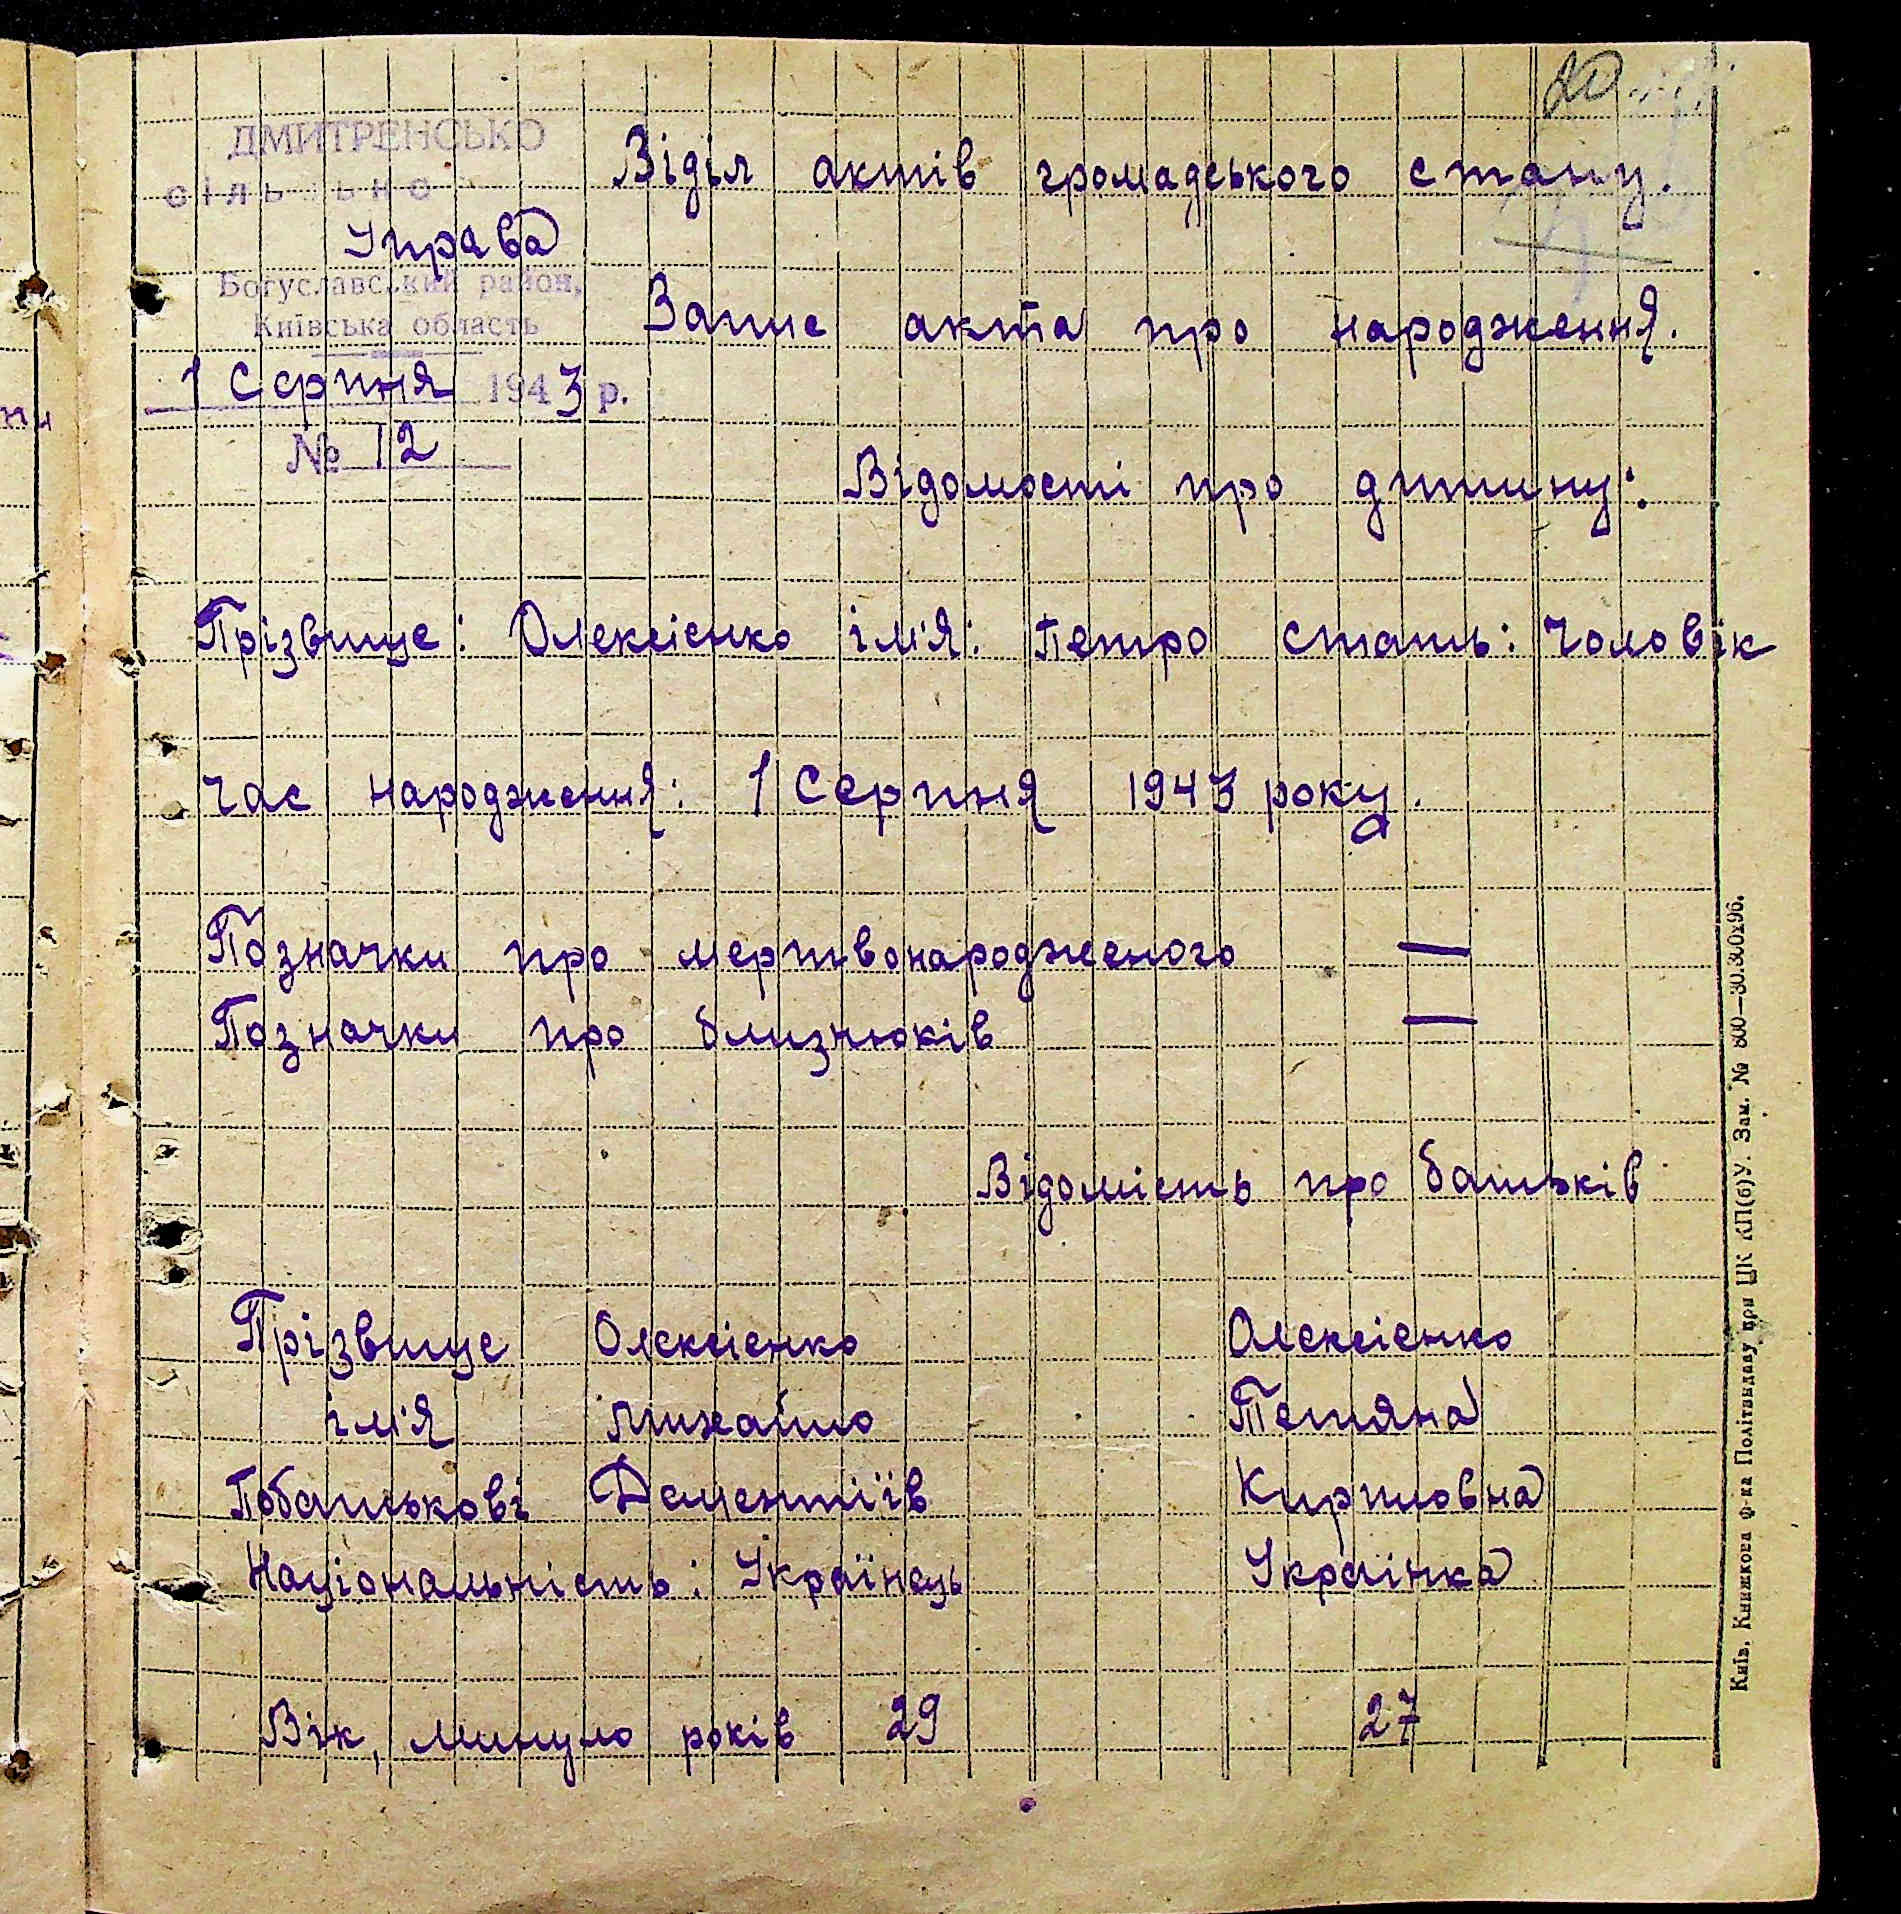 20
ДМИТРЕНСЬКО
Віділ актів громадського стану.
Управа
Богуславський район,
Київська область
Запис акта про народження.
1 Серпня 1943 р.
№ 12
Відомості про дитину:
Прізвище: Олексієнко ім'я: Петро стать: Чоловік
Час народження: 1 Серпня 1943 року.
Позначки про мертвонародженого —
Позначки про близнюків —
Відомість про батьків
Прізвище Олексієнко Олексієнко
ім'я михайло Тетяна
Побатькові Дементіїв Кириловна
Національність: Українець Українка
Вік, минуло років 29 27
Київ. Книжкова ф-ка Політвидаву при ЦК КП(б)У. Зам. № 800—30.300х96.